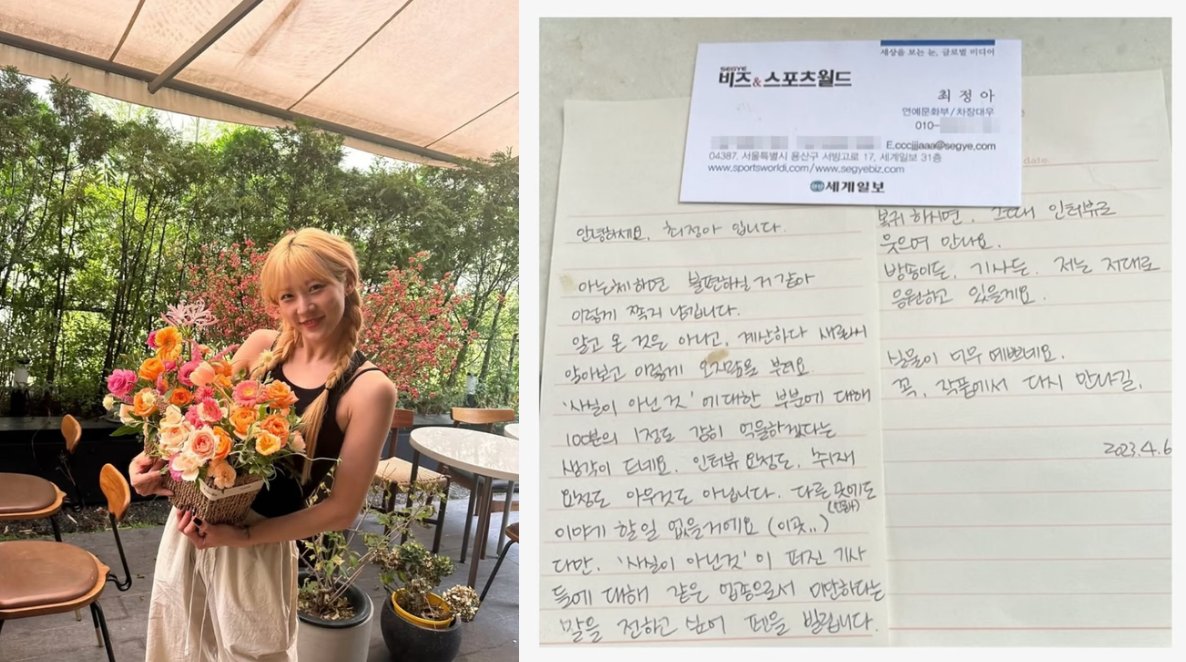 세상을 보는 눈, 글로벌 미디어
SEGYE
비즈&스포츠월드
최 정 아
연예문화부/차장대우
010-
E.cccjjjaaa@segye,com
04387, 서울특별시 용산구 서빙고로 17, 세계일보 31층
www.sportsworldi.com/www.segyebiz.com
세계일보
date.
안녕하세요. 최정아 입니다.
아는체하면 불편하실 거 같아
이렇게 쪽지 남깁니다.
알고 온 것은 아니고, 계산하다 새로이
알아보고 이렇게 오지랖을 부려요
'사실이 아닌 것'에 대한 부분에 대해
100분의 1정도 감히 억울하겠다는
생각이 드네요. 인터뷰 요청도, 취재
요청도 아무것도 아닙니다. 다른 곳에도
이야기 할 일 없을거에요 (이곳..)
다만, '사실이 아닌것'이 퍼진 기사
들에 대해 같은 업종으로서 미안하다는
말을 전하고 싶어 펜을 빌립니다.
복귀 하시면, 그때 인터뷰로
웃으며 만나요.
방송이든, 기사든. 저는 저대로
응원하고 있을게요.
실물이 너무 예쁘네요.
꼭, 작품에서 다시 만나길,
2023.4.6